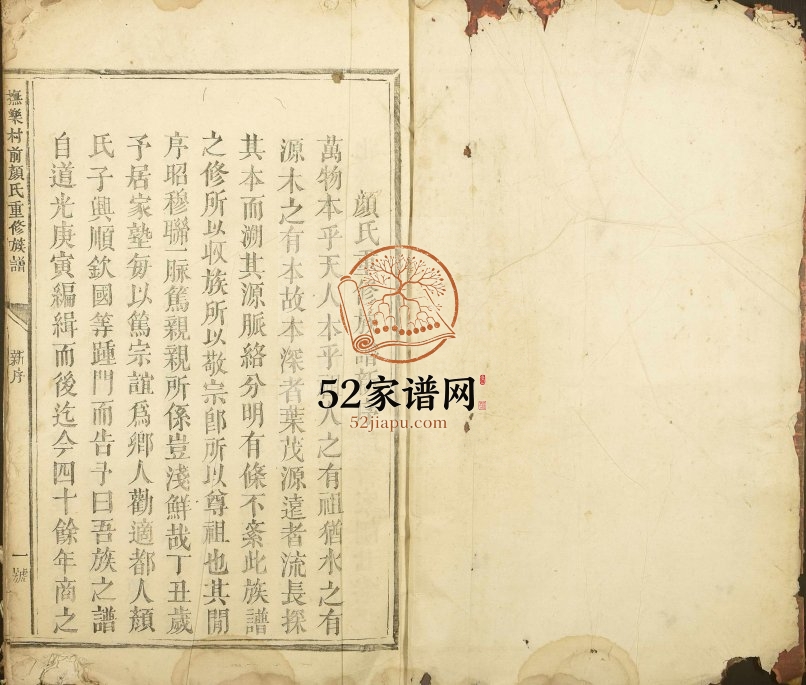 顏氏重修族譜新
萬物本乎天人本乎人之有祖猶水之有
源木之有本故本深者葉茂源遠者流長探
其本而溯其源脈絡分明有條不紊此族譜
之修所以收族所以敬宗卽所以尊祖也其間
序昭穆聯一脈篤親親所係豈淺鮮哉丁丑歲
予居家塾每以篤宗誼爲鄉人勸適都人顏
氏子興順欽國等踵門而告予曰吾族之譜
自道光庚寅編緝而後迄今四十餘年商之
撫樂村前顏氏重修族譜
新序
一號
52家谱网
52jiapu.com